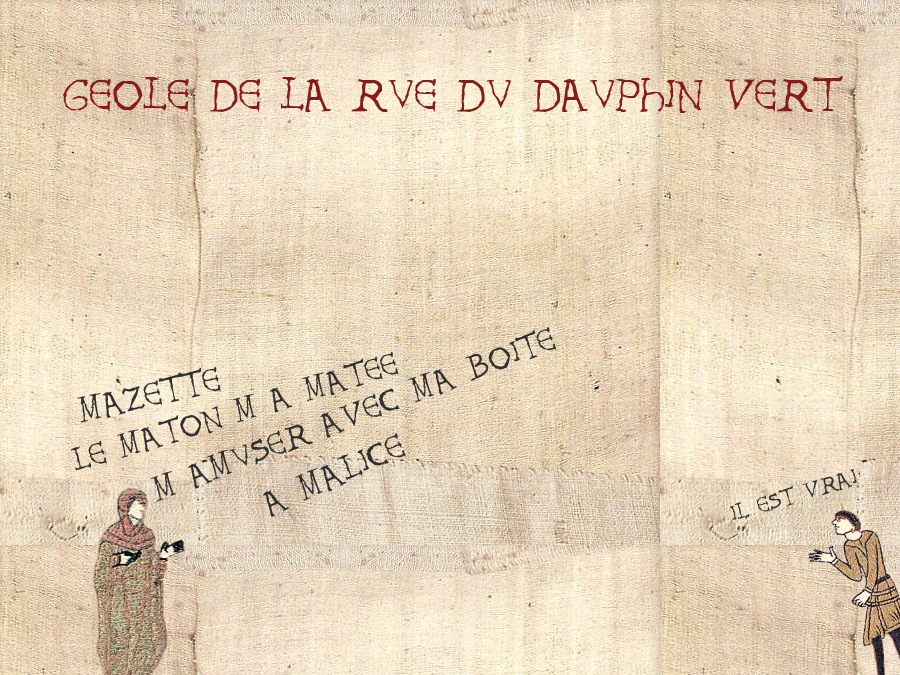 GEOLE DE LA RVE DV DAVPhIN VERT
MAZETTE
LE MATON M A MATEE
M AMVSER AVEC MA BOITE
A MALICE
IL EST VRAI